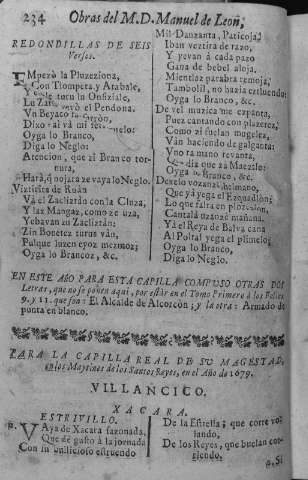 234 Obras del M.D. Manuel de Leon,
REDONDILLAS DE SEIS
Versos.
Empezò la
Con Tlompeta, y Atabale,
Y
Lu yevò el Pendona.
Vn
Dixo
Oyga lo Branco,
Diga lo Neglo:
Atencion, que al Branco tor-
nura,
Harà, q vaya lo Neglo.
de Ruàn
Và el Zaclistàn con la Cluza,
Y laz Mangaz, como ze uza,
Yebavan zu Zaclistàn:
Zin Bonetez turus vàn,
Pulque luzen epoz mezmoz;
Oyga lo Brancoz, &c.
Mil Danzanta, Paticoja,
Iban veztira de razo,
Y yevan à cada pazo
Gana de bebel aloja.
Mientlaz parabra remoja,
Tambolil, no hazia
Oyga lo Branco, &c.
De vel muzica me expanta,
Puez cantando con
Como zi fuelan mugelez,
Vàn haciendo de galganta:
Vno ra mano revanta,
Que dize que za Maezlo:
Oyga lo Branco, &c.
Dexelo vozanzè, helmano,
Que yà yega el Ezquadlòn;
Lo que falta en
Cantalà uzanze mañana.
Yà el Reya de Balva cana
Al Poltal yega el plimelo;
Oyga lo Branco,
Diga lo Neglo.
EN ESTE AñO PARA ESTA CAPILLA COMPUSO OTRAS DOS
Letras, que no se ponen aqui, por estàr en el Tomo Primero à los Folios
9. y 11. que son: El Alcalde de Alcorcòn; y la otra: Armado de
punta en blanco.
PARA LA CAPILLA REAL DE SU MAGESTAD,
en los Maytines de los Santos Reyes, en el Año de 1679.
VILLANCICO.
XACARA.
ESTRIVILLO.
Vaya de Xacara sazonada,
Que dè gusto à la jornada
Con su bullicioso estruendo
De la Estrella; que corre vo-
lando,
De los Reyes, que buelan cor-
riendo.